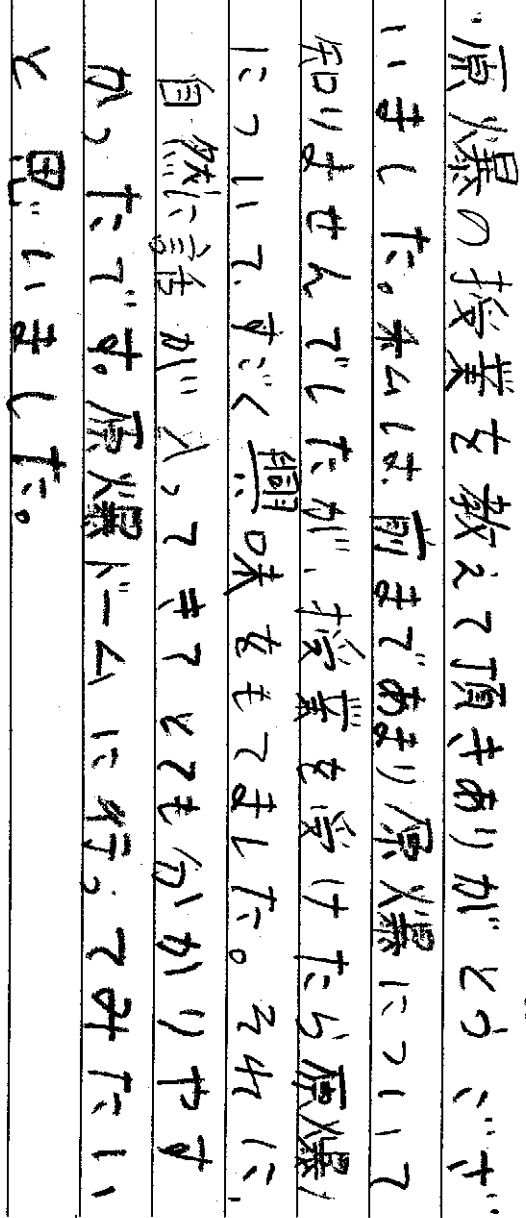 原爆の授業を教えて頂きありがとうござ
いました。私は、前まであまり原爆について
知りませんでしたが、授業を受けたら原爆
について、すごく興味をもてました。それに、
自然に話が入ってきてとても分かりやす
かったです。原爆ドームに行ってみたい
と思いました。